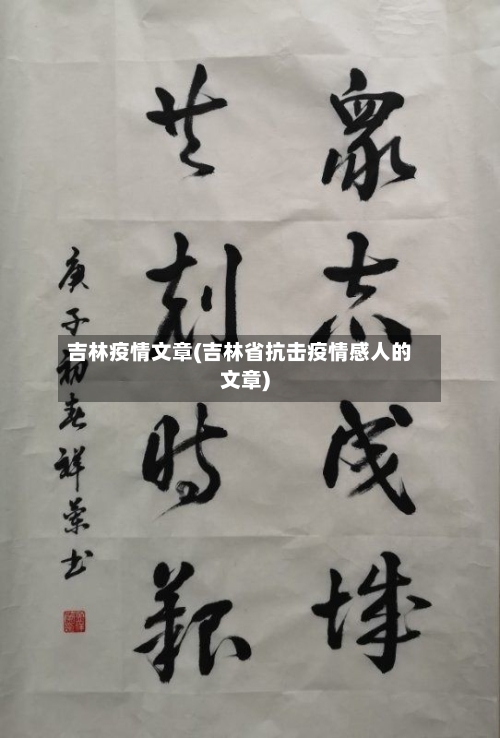 衆志成城
共剋時艱
庚子初春祥荣书
吉林疫情文章(吉林省抗击疫情感人的
文章)